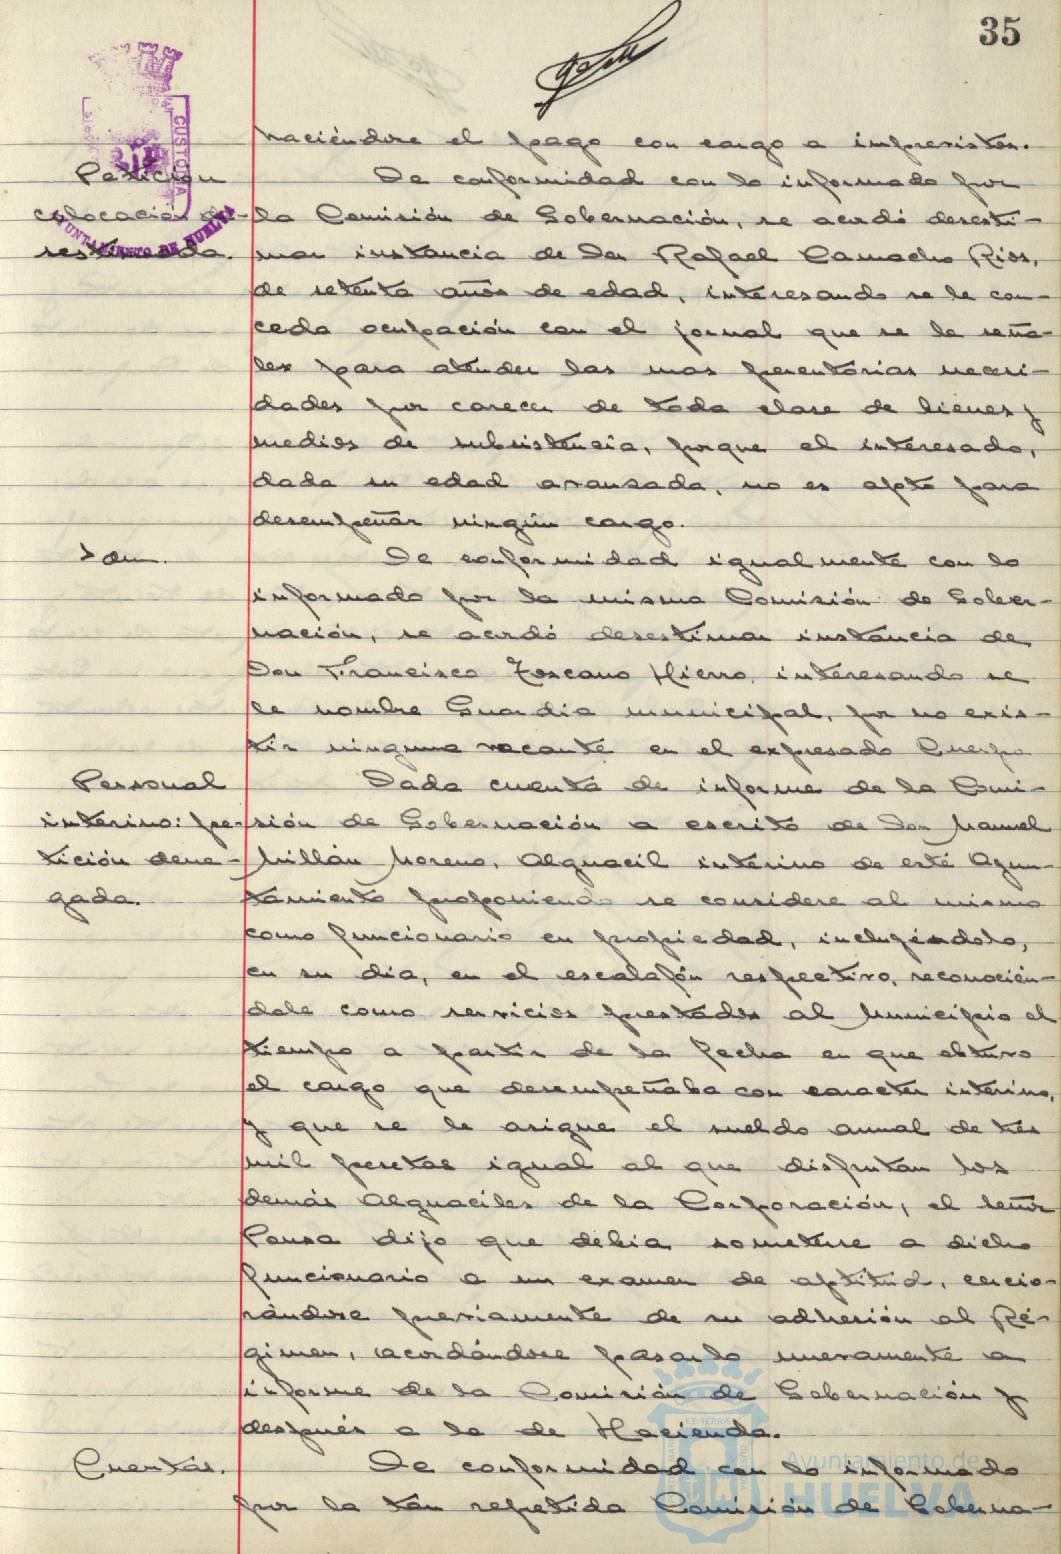 35
haciéndose el pago con cargo a imprevistos.
Petición
colocación de-
sestimada.
CUSTODIA
AYUNTAMIENTO DE HUELVA
De conformidad con lo informado por
la Comisión de Gobernación, se acordó desesti-
mar instancia de Don Rafael Camacho Rios,
de setenta años de edad, interesando se le con-
ceda ocupación con el jornal que se le seña-
le para atender las mas perentorias necesi-
dades por carecer de toda clase de bienes y
medios de subsistencia, porque el interesado,
dada su edad avanzada, no es apto para
desempeñar ningún cargo.
Idem.
De conformidad igualmente con lo
informado por la misma Comisión de Gober-
nación, se acordó desestimar instancia de
Don Francisco Toscano Hierro, interesando se
le nombre Guardia municipal, por no exis-
tir ninguna vacante en el expresado Cuerpo
Personal
interino: pe-
tición dene-
gada.
Dada cuenta de informe de la Comi-
sión de Gobernación a escrito de Don Manuel
Millán Moreno, Alguacil interino de este Ayun-
tamiento proponiendo se considere al mismo
como funcionario en propiedad, incluyéndolo,
en su dia, en el escalafón respectivo, reconocién-
dole como servicios prestados al Municipio el
tiempo a partir de la fecha en que obtuvo
el cargo que desempeñaba con caracter interino,
y que se le asigne el sueldo anual de tres
mil pesetas igual al que disfrutan los
demás Alguaciles de la Corporación, el señor
Ponsa dijo que debia someterse a dicho
funcionario a un examen de aptitud, cercio-
rándose previamente de su adhesión al Ré-
gimen, acordándose pasarlo nuevamente a
informe de la Comisión de Gobernación y
después a la de Hacienda.
Cuentas.
De conformidad con lo informado
por la tan repetida Comisión de Goberna-
Ayuntamiento de
HUELVA